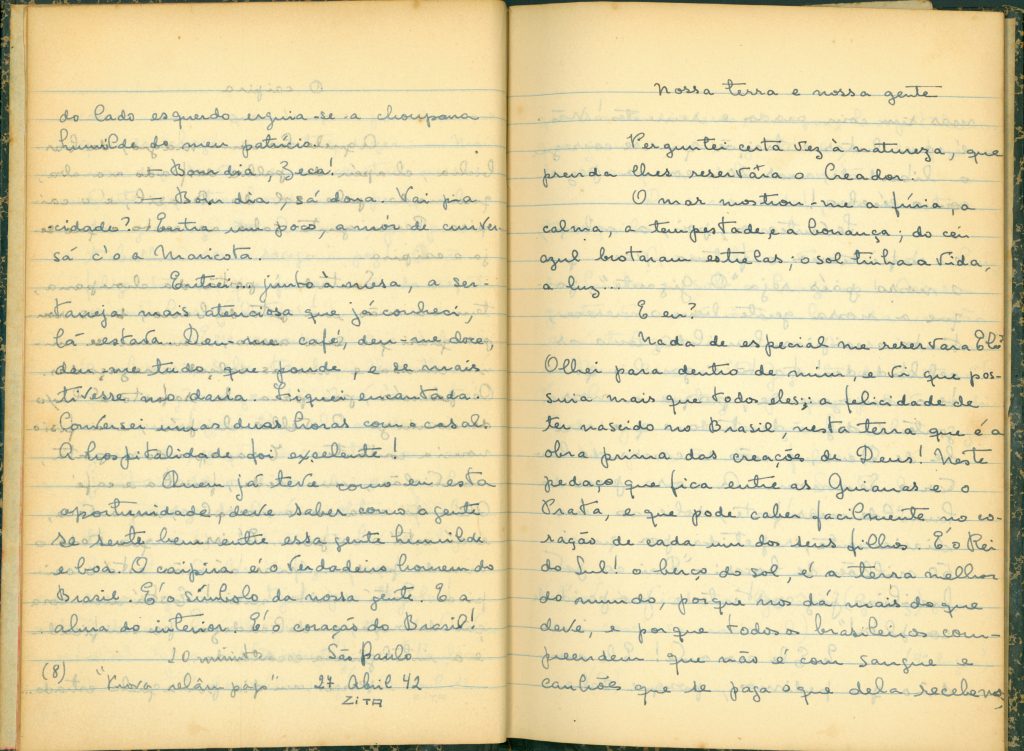 do lado esquerdo erguia-se a choupana
humilde do meu patrício.
— Bom dia, Zeca!
— Bom dia, sá dona. Vai pra
cidade? Entra um poco, a mór de cunver-
sá c'o a Maricota.
Entrei... junto à mesa, a ser-
taneja mais atenciosa que já conheci,
lá estava. Deu-me café, deu-me doce,
deu-me tudo que poude, e se mais
tivesse mo daria. Fiquei encantada.
Conversei umas duas horas com o casal.
A hospitalidade foi excelente!
Quem já teve como eu esta
oportunidade, deve saber como a gente
se sente bem entre essa gente humilde
e boa. O caipira é o verdadeiro homem do
Brasil. É o símbolo da nossa gente. É a
alma do interior. É o coração do Brasil!
20 minutos São Paulo
(8) "Prova relâmpago" 27 Abril 42
ZITA
Nossa terra e nossa gente
Perguntei certa vez à natureza, que
prenda lhes reservára o Creador.
O mar mostrou-me a fúria, a
calma, a tempestade, e a bonança; do céu
azul brotaram estrelas; o sol tinha a vida,
a luz...
E eu?
Nada de especial me reservara Ele?
Olhei para dentro de mim, e vi que pos-
suia mais que todos eles: a felicidade de
ter nascido no Brasil, nesta terra que é a
obra prima das creações de Deus! Neste
pedaço que fica entre as Guianas e o
Prata, e que pode caber facilmente no co-
ração de cada um dos seus filhos. É o Rei
do Sul! o berço do sol, é a terra melhor
do mundo, porque nos dá mais do que
deve, e porque todos os brasileiros com-
preendem que não é com sangue e
canhões que se paga o que dela recebemos,